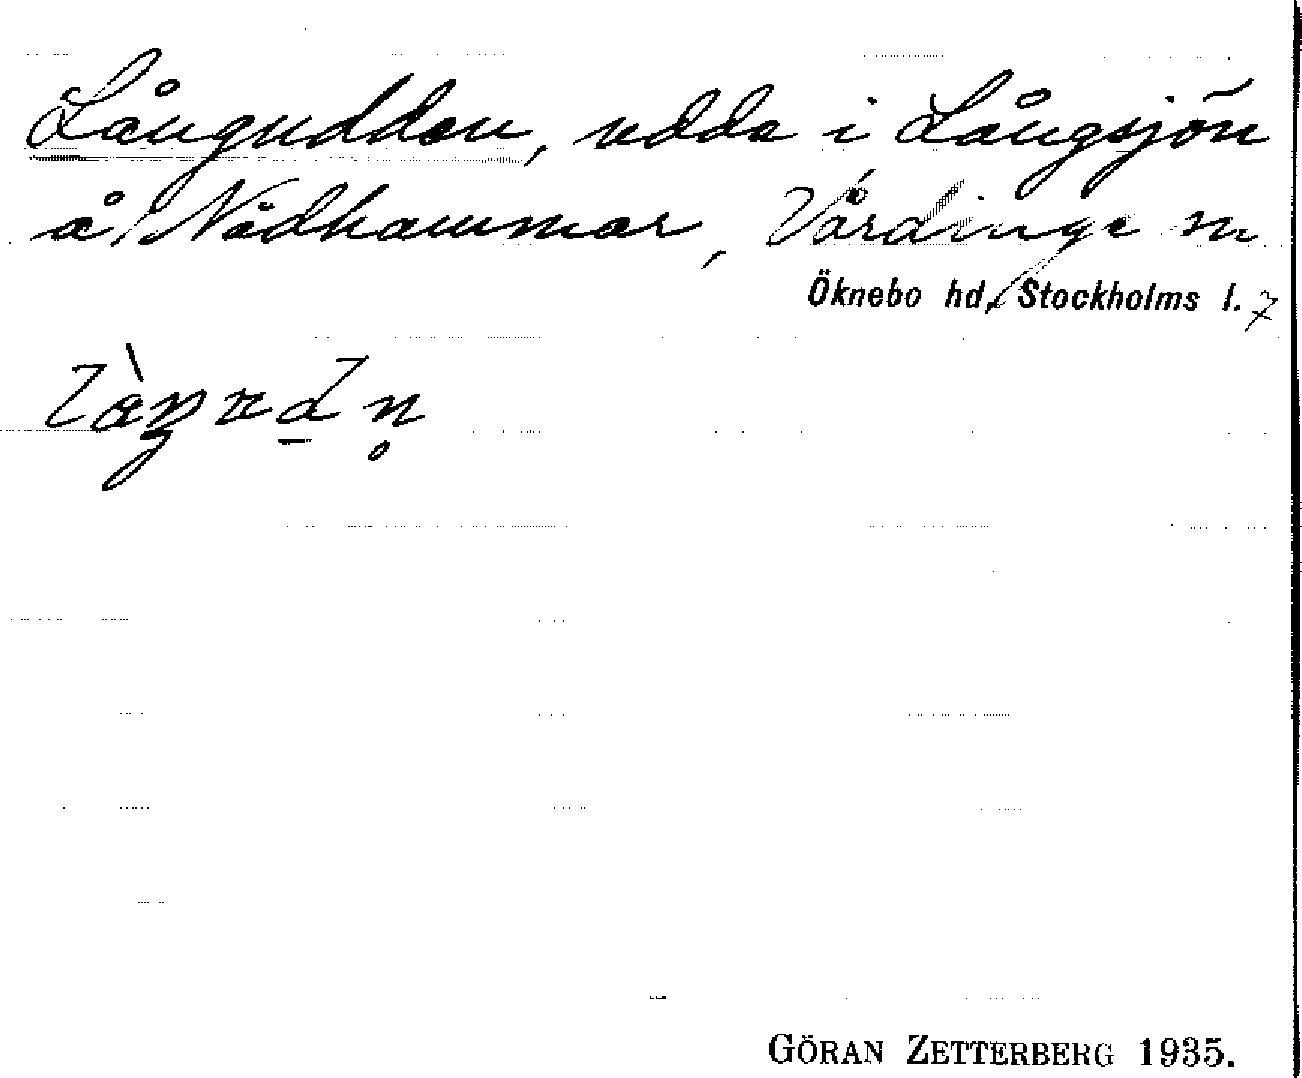 Långudden, udde i Långsjön
å Nådhammar, Vårdinge sn
Öknebo hd, Stockholms l.
GÖRAN ZETTERBERG 1935.